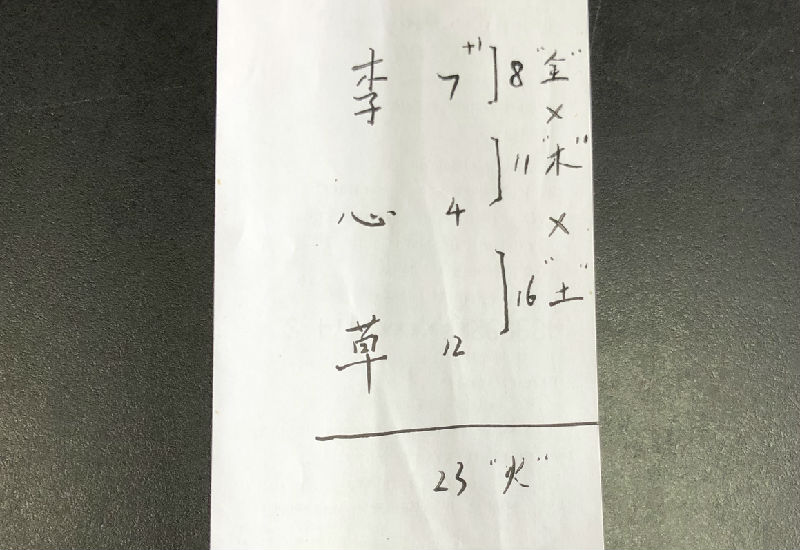 李 7 +1 ] 8 "金"
×
] 11 "木"
心 4 ×
] 16 "土"
草 12
23 "火"